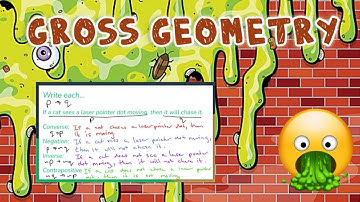 GROSS GEOMETRY
Write each...
p → q
If a cat sees a laser pointer dot moving, then it will chase it.
p q
Converse: If a cat chase a laser pointer dot, then
q→p it is moving.
Negation: If a cat sees a laser pointer dot moving,
p → ¬q then it will not chase it.
Inverse: If a cat does not see a laser pointer
¬p → ¬q dot moving, then it will not chase it.
Contrapositive If a cat does not chase a laser pointer
¬q → ¬p dot, then it is not moving.